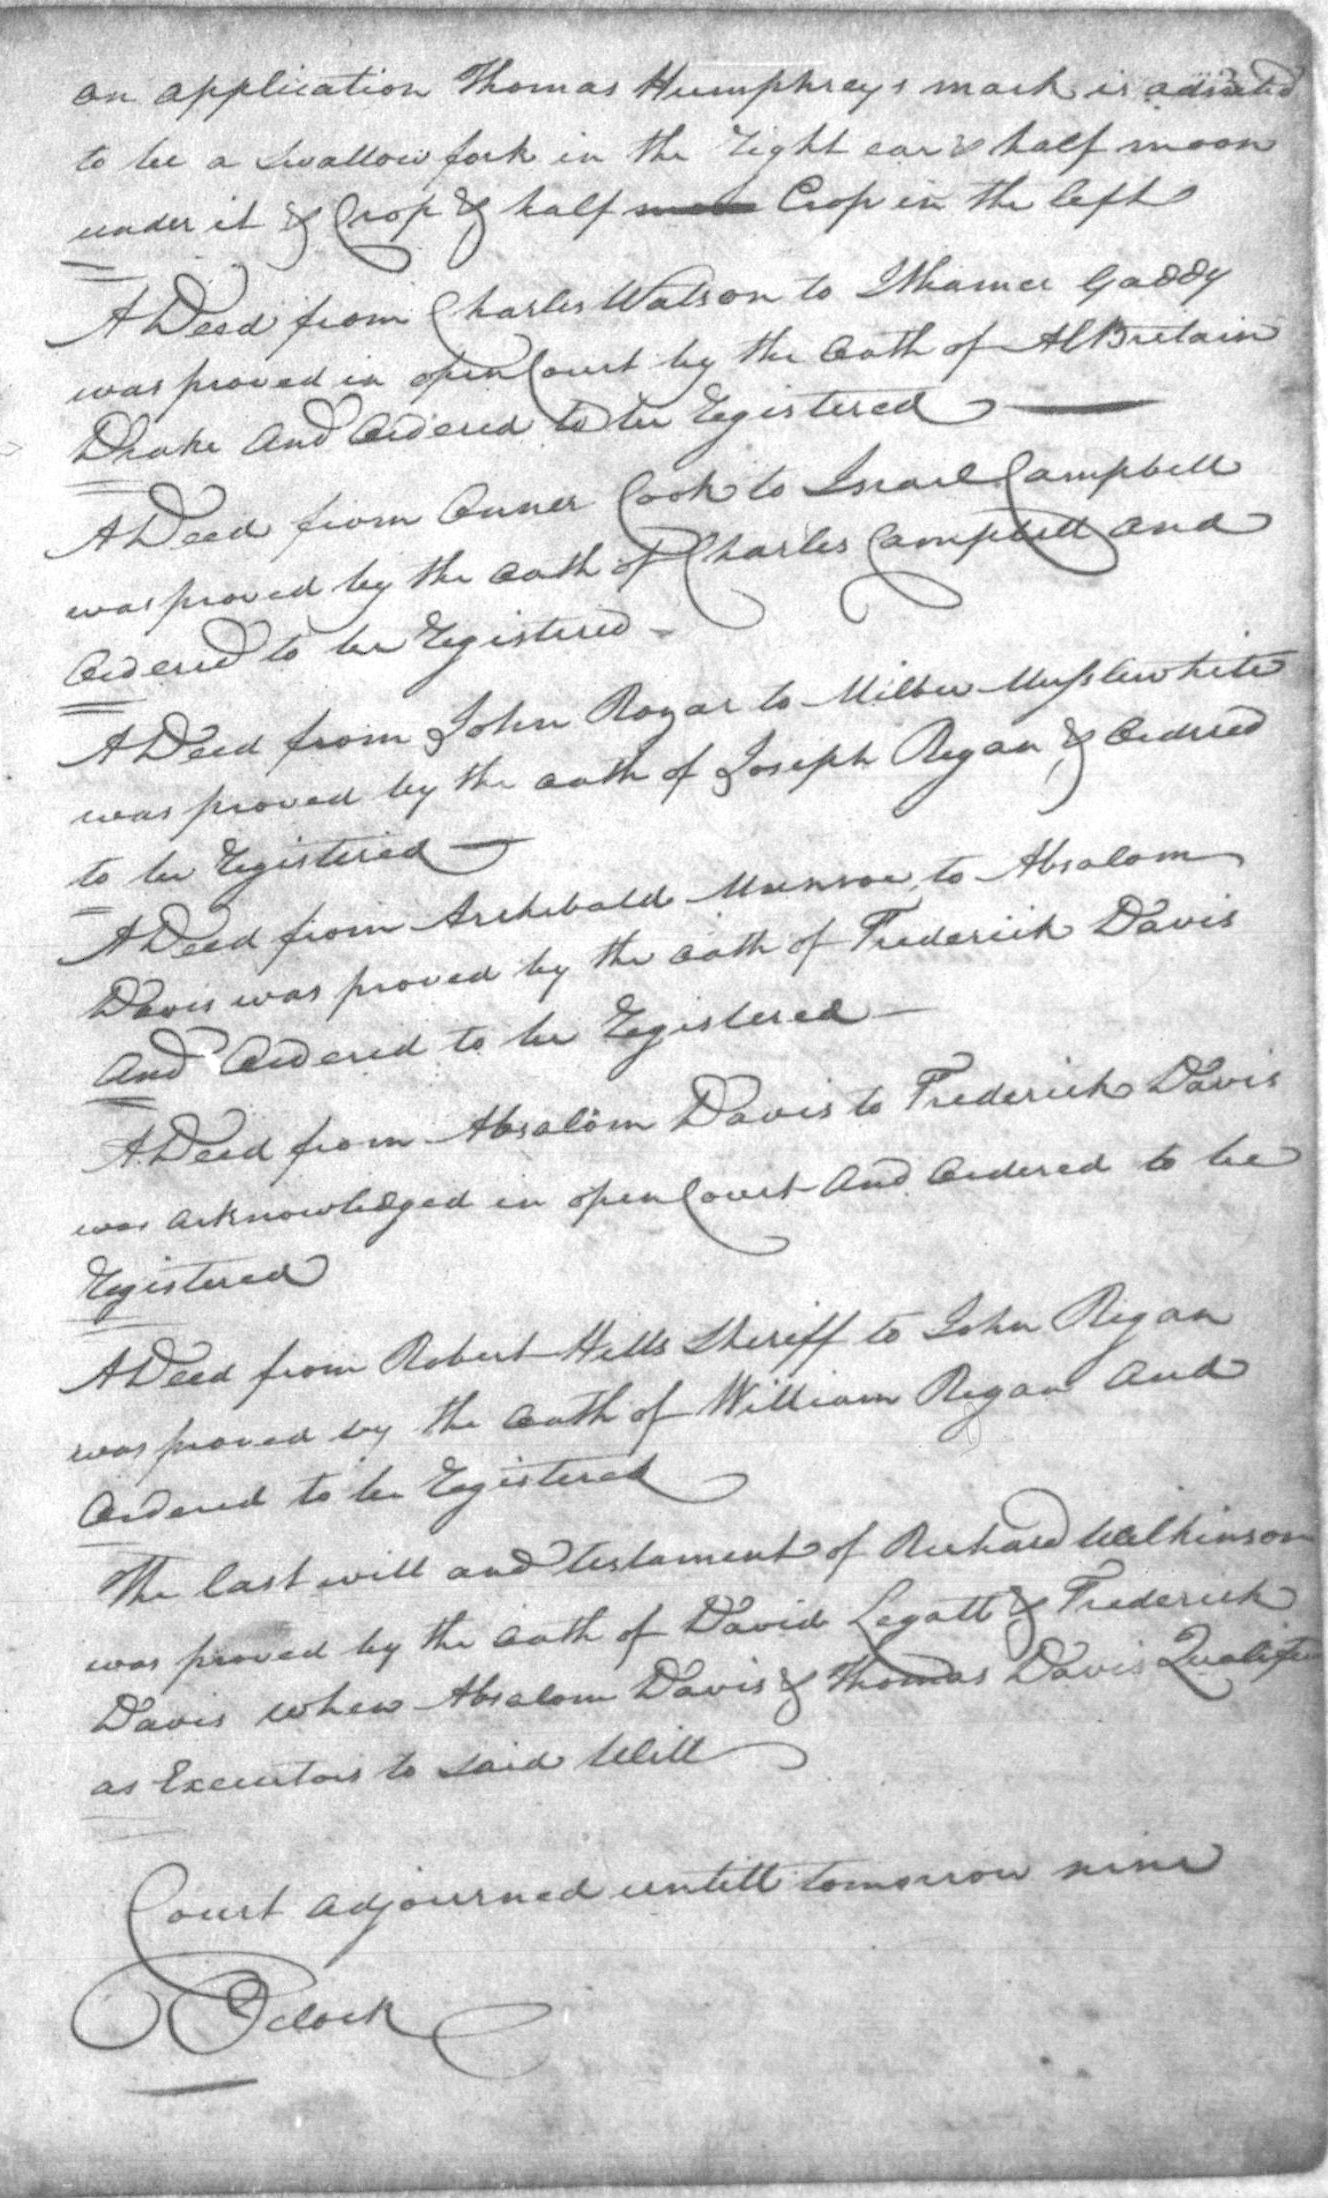 on application Thomas Humphreys mark is admited
to be a Swallow fork in the right ear & half moon
under it & Crop & half moon Crop in the left
A Deed from Charles Watson to Ithamer Gaddy
was proved in open Court by the oath of Al Britain
Drake And Ordered to be Registered
A Deed from Conner Cook to Israel Campbell
was proved by the oath of Charles Campbell and
Ordered to be Registered
A Deed from John Rogar to Milbe Musslewhite
was proved by the oath of Joseph Regan & Ordered
to be Registered
A Deed from Archibald Munroe to Absalom
Davis was proved by the oath of Frederick Davis
And Ordered to be Registered
A Deed from Absalom Davis to Frederick Davis
was acknowledged in open Court And Ordered to be
Registered
A Deed from Robert Hills Sheriff to John Regan
was proved by the oath of William Regan And
Ordered to be Registered
The last will and testament of Richard Wilkinson
was proved by the oath of David Legatt & Frederick
Davis when Absalom Davis & Thomas Davis Qualified
as Executors to said Will
Court adjourned untill tomorrow nine
Oclock